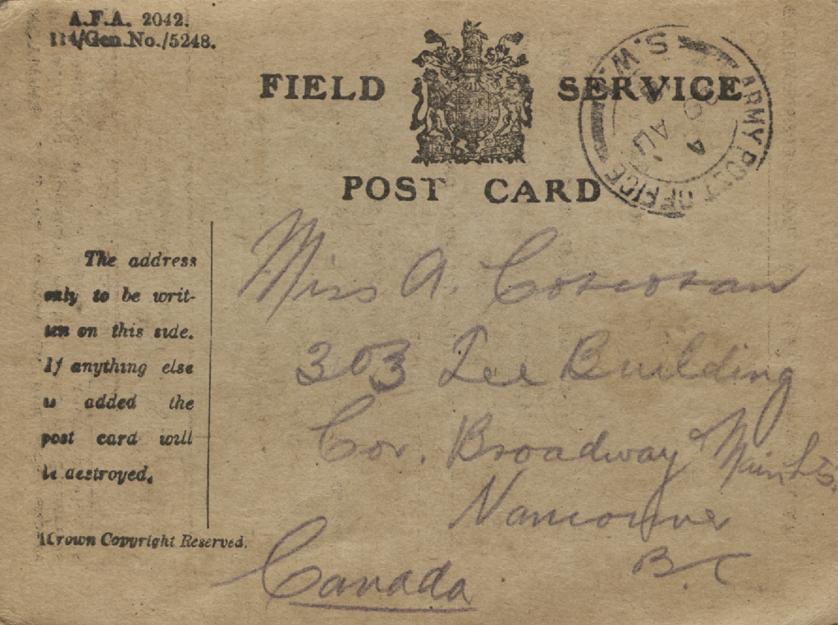 A.F.A. 2042.
114/Gen.No./5248.
FIELD SERVICE
POST CARD
ARMY POST OFFICE
S.W.
A
AU
The address
only to be writ-
ten on this side.
If anything else
is added the
post card will
be destroyed.
Crown Copyright Reserved.
Miss A.
303 Lee Building
Cor. Broadway &
Vancouver
B.C
Canada